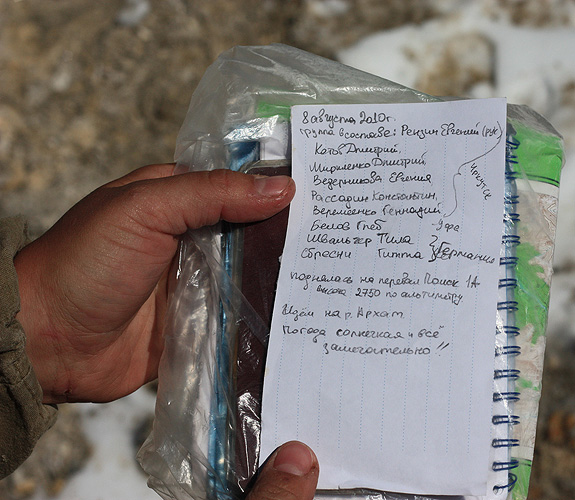 8 августа 2010г.
группа в составе: Рензин Евгений (рук)
Котов Дмитрий,
Мироненко Дмитрий,
Ведерникова Евгения
Рассадин Константин,
Веремеенко Геннадий
Иркутск
Белов Глеб - Уфа
Швальгер Тила
Гимма
Германия
поднялась на перевал Поиск 1А
высота 2750 по альтиметру
Идём на р. Архат.
Погода солнечная и всё
замечательно!!